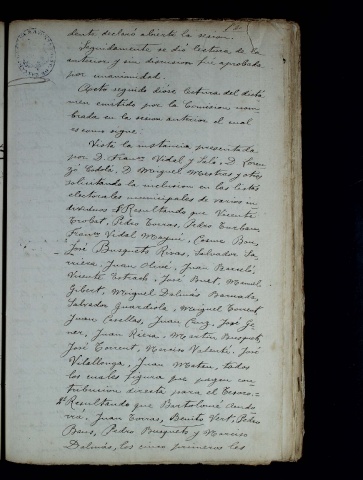 dente, declaró abierta la sesion.
Seguidamente se dió lectura de la
anterior y sin discusion fué aprobada
por unanimidad.
Acto seguido dióse lectura del dictá
men emitido por la Comision nom
brada en la sesion anterior el cual
es como sigue.
Vista la instancia presentada
por D. Franco Vidal y D. Loren
zo D. Miguel Maestras y otros
solicitando la inclusion en las listas
electorales municipales de varios in
dividuos. Resultando que Vicente
Trobat, Pedro Torras, Pedro
Franco Vidal Cosme Bou,
José Busquets Rosas, Salvador Sa
Juan Oliver, Juan Barceló,
Vicente José Buet, Manuel
Gibert, Miguel Dalmau Barnada,
Salvador Guardiola, Miguel Torrent
Juan Casellas, Juan Cruz, José Gi
Juan Riera, Martin Busquets,
José Torrent, Narciso Valenti, José
Vilallonga, Juan Mateu, todos
los cuales figura que pagan con
tribucion directa para el Tesoro.=
Resultando que Bartolomé
Juan Torras, Benito Vert, Pedro
Bous, Pedro Busquets y Narciso
Dalmau, los cinco primeros les